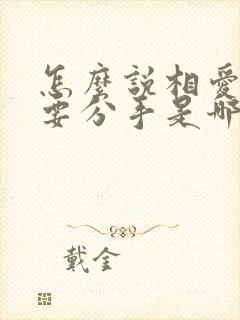 怎麼說相愛
要分手是哪
戴金